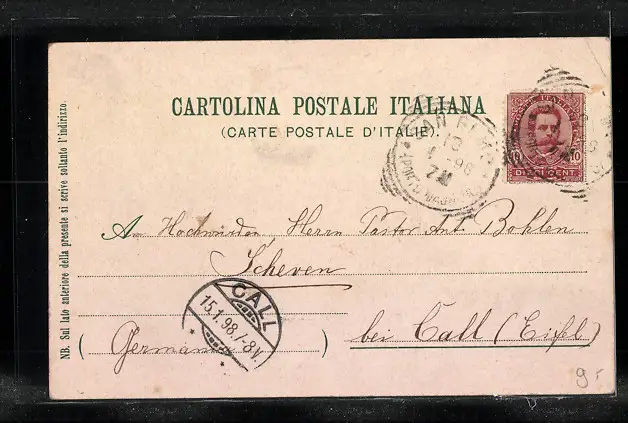 CARTOLINA POSTALE ITALIANA
(CARTE POSTALE D'ITALIE).
NB. Sul lato anteriore della presente si scrive soltanto l'indirizzo.
SAN REMO
13
98
DIECI CENT
10
An Hochwürden, Herrn Pastor Ant. Bohlen
Scheven
bei Call (Eifel)
(Germania)
CALL
15.1.98.7-8V.
9.-